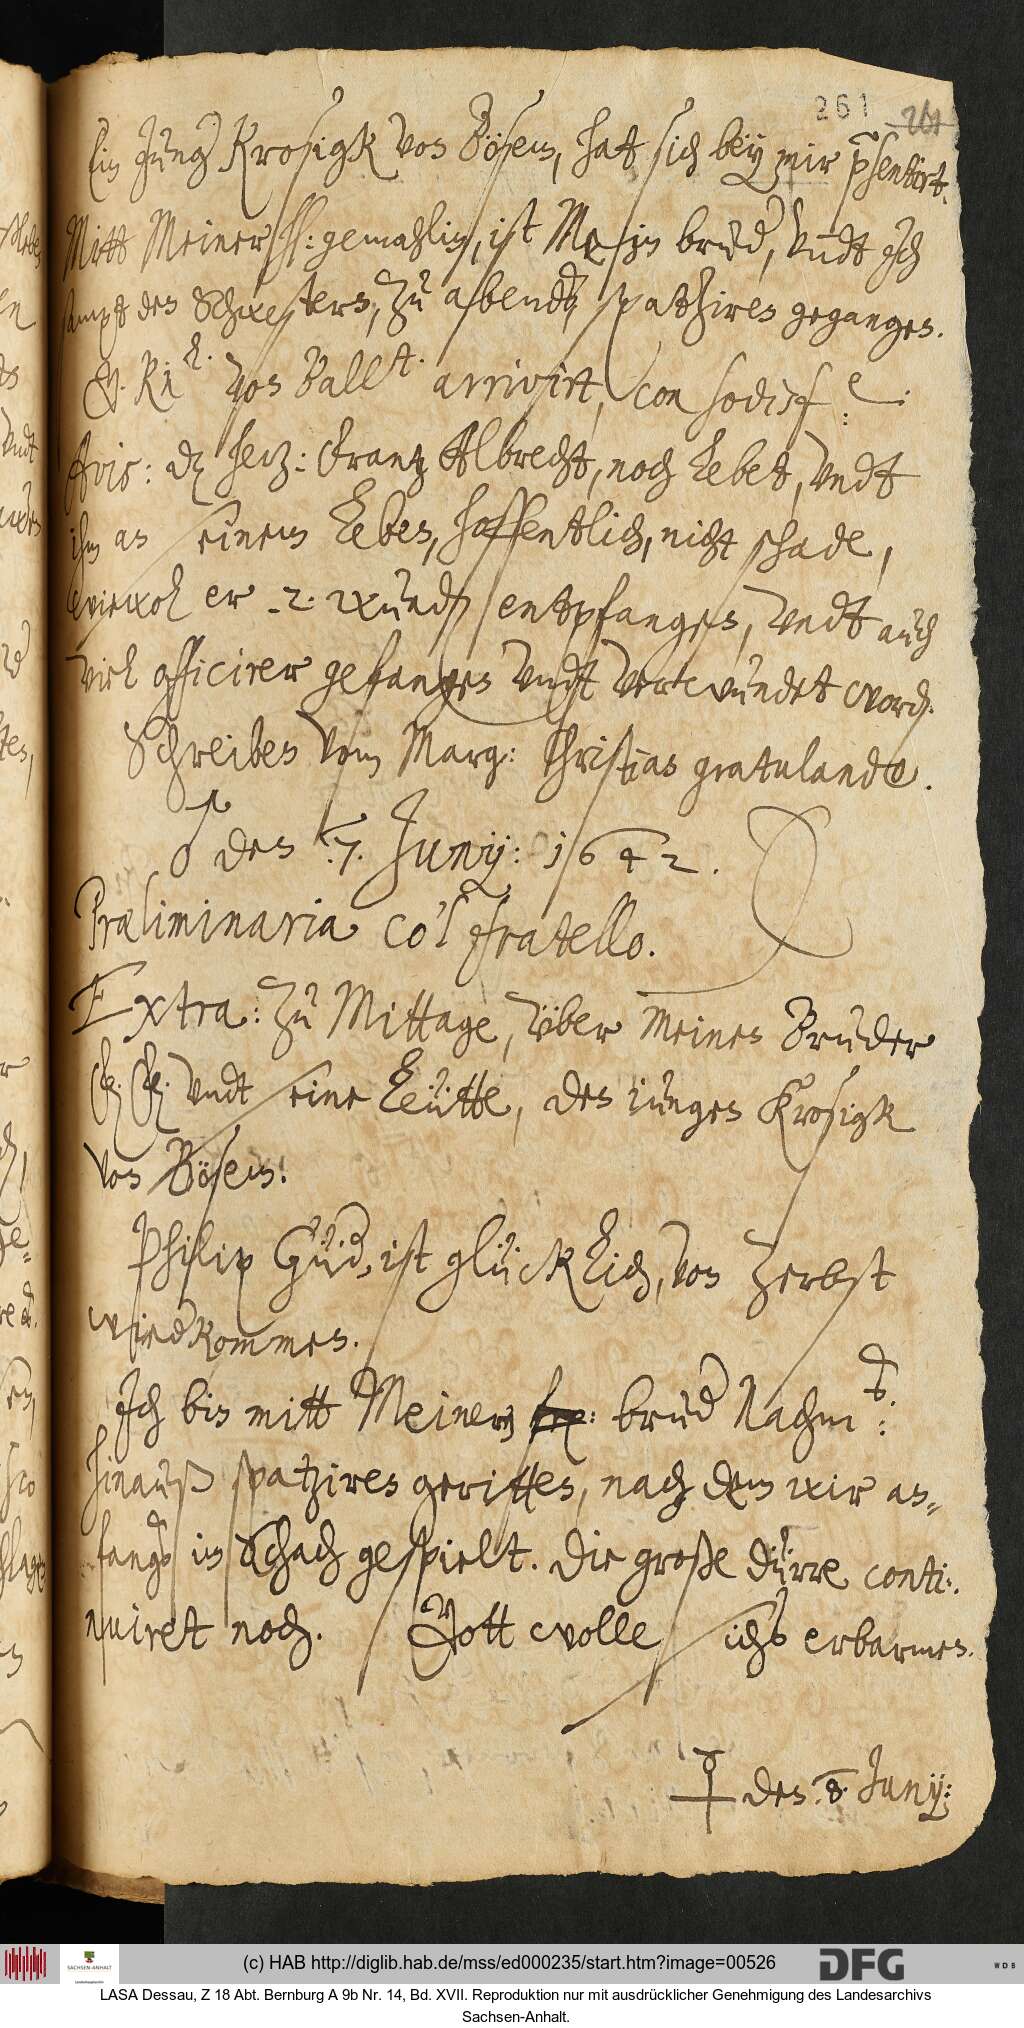 261
Ein Jung Krosigk von Bösem, hat sich bey mir p̃sentirt.
Mitt Meiner fr: gemahlin, ist Mein brud, undt Ich
sampt den Schwestern, zu abendt spatziren geganges.
Ri von Ball t. arrivirt, con sodisf:e
Avis: dz Herz: Frantz Albrecht, noch Lebet, undt
ihm an seinem Leben, hoffentlich, nicht schade,
wiewol er .2. wunden entpfangen, undt auch
viel officirer gefangen undt verwundet word.
Schreiben vom Marg: Christian gratulande.
♂ den .7. Junij: 1642.
Præliminaria co'l fratello.
Extra: Zu Mittage, über meinen Bruder
undt seine Leütte, den iungen Krosigk
von Bösem.
Philip Güd, ist glücklich, von Zerbst
wiedkommen.
Ich bin mitt Meinem brud Nachm:
hinauß spatziren geritten, nach dem wir an=
fangs im Schach gespielt. Die große dürre conti:
nuiret noch. Gott wolle ichs erbarmen.
☿ den .8. Junij:
(c) HAB http://diglib.hab.de/mss/ed000235/start.htm?image=00526
SACHSEN-ANHALT
DFG
WDB
LASA Dessau, Z 18 Abt. Bernburg A 9b Nr. 14, Bd. XVII. Reproduktion nur mit ausdrücklicher Genehmigung des Landesarchivs
Sachsen-Anhalt.